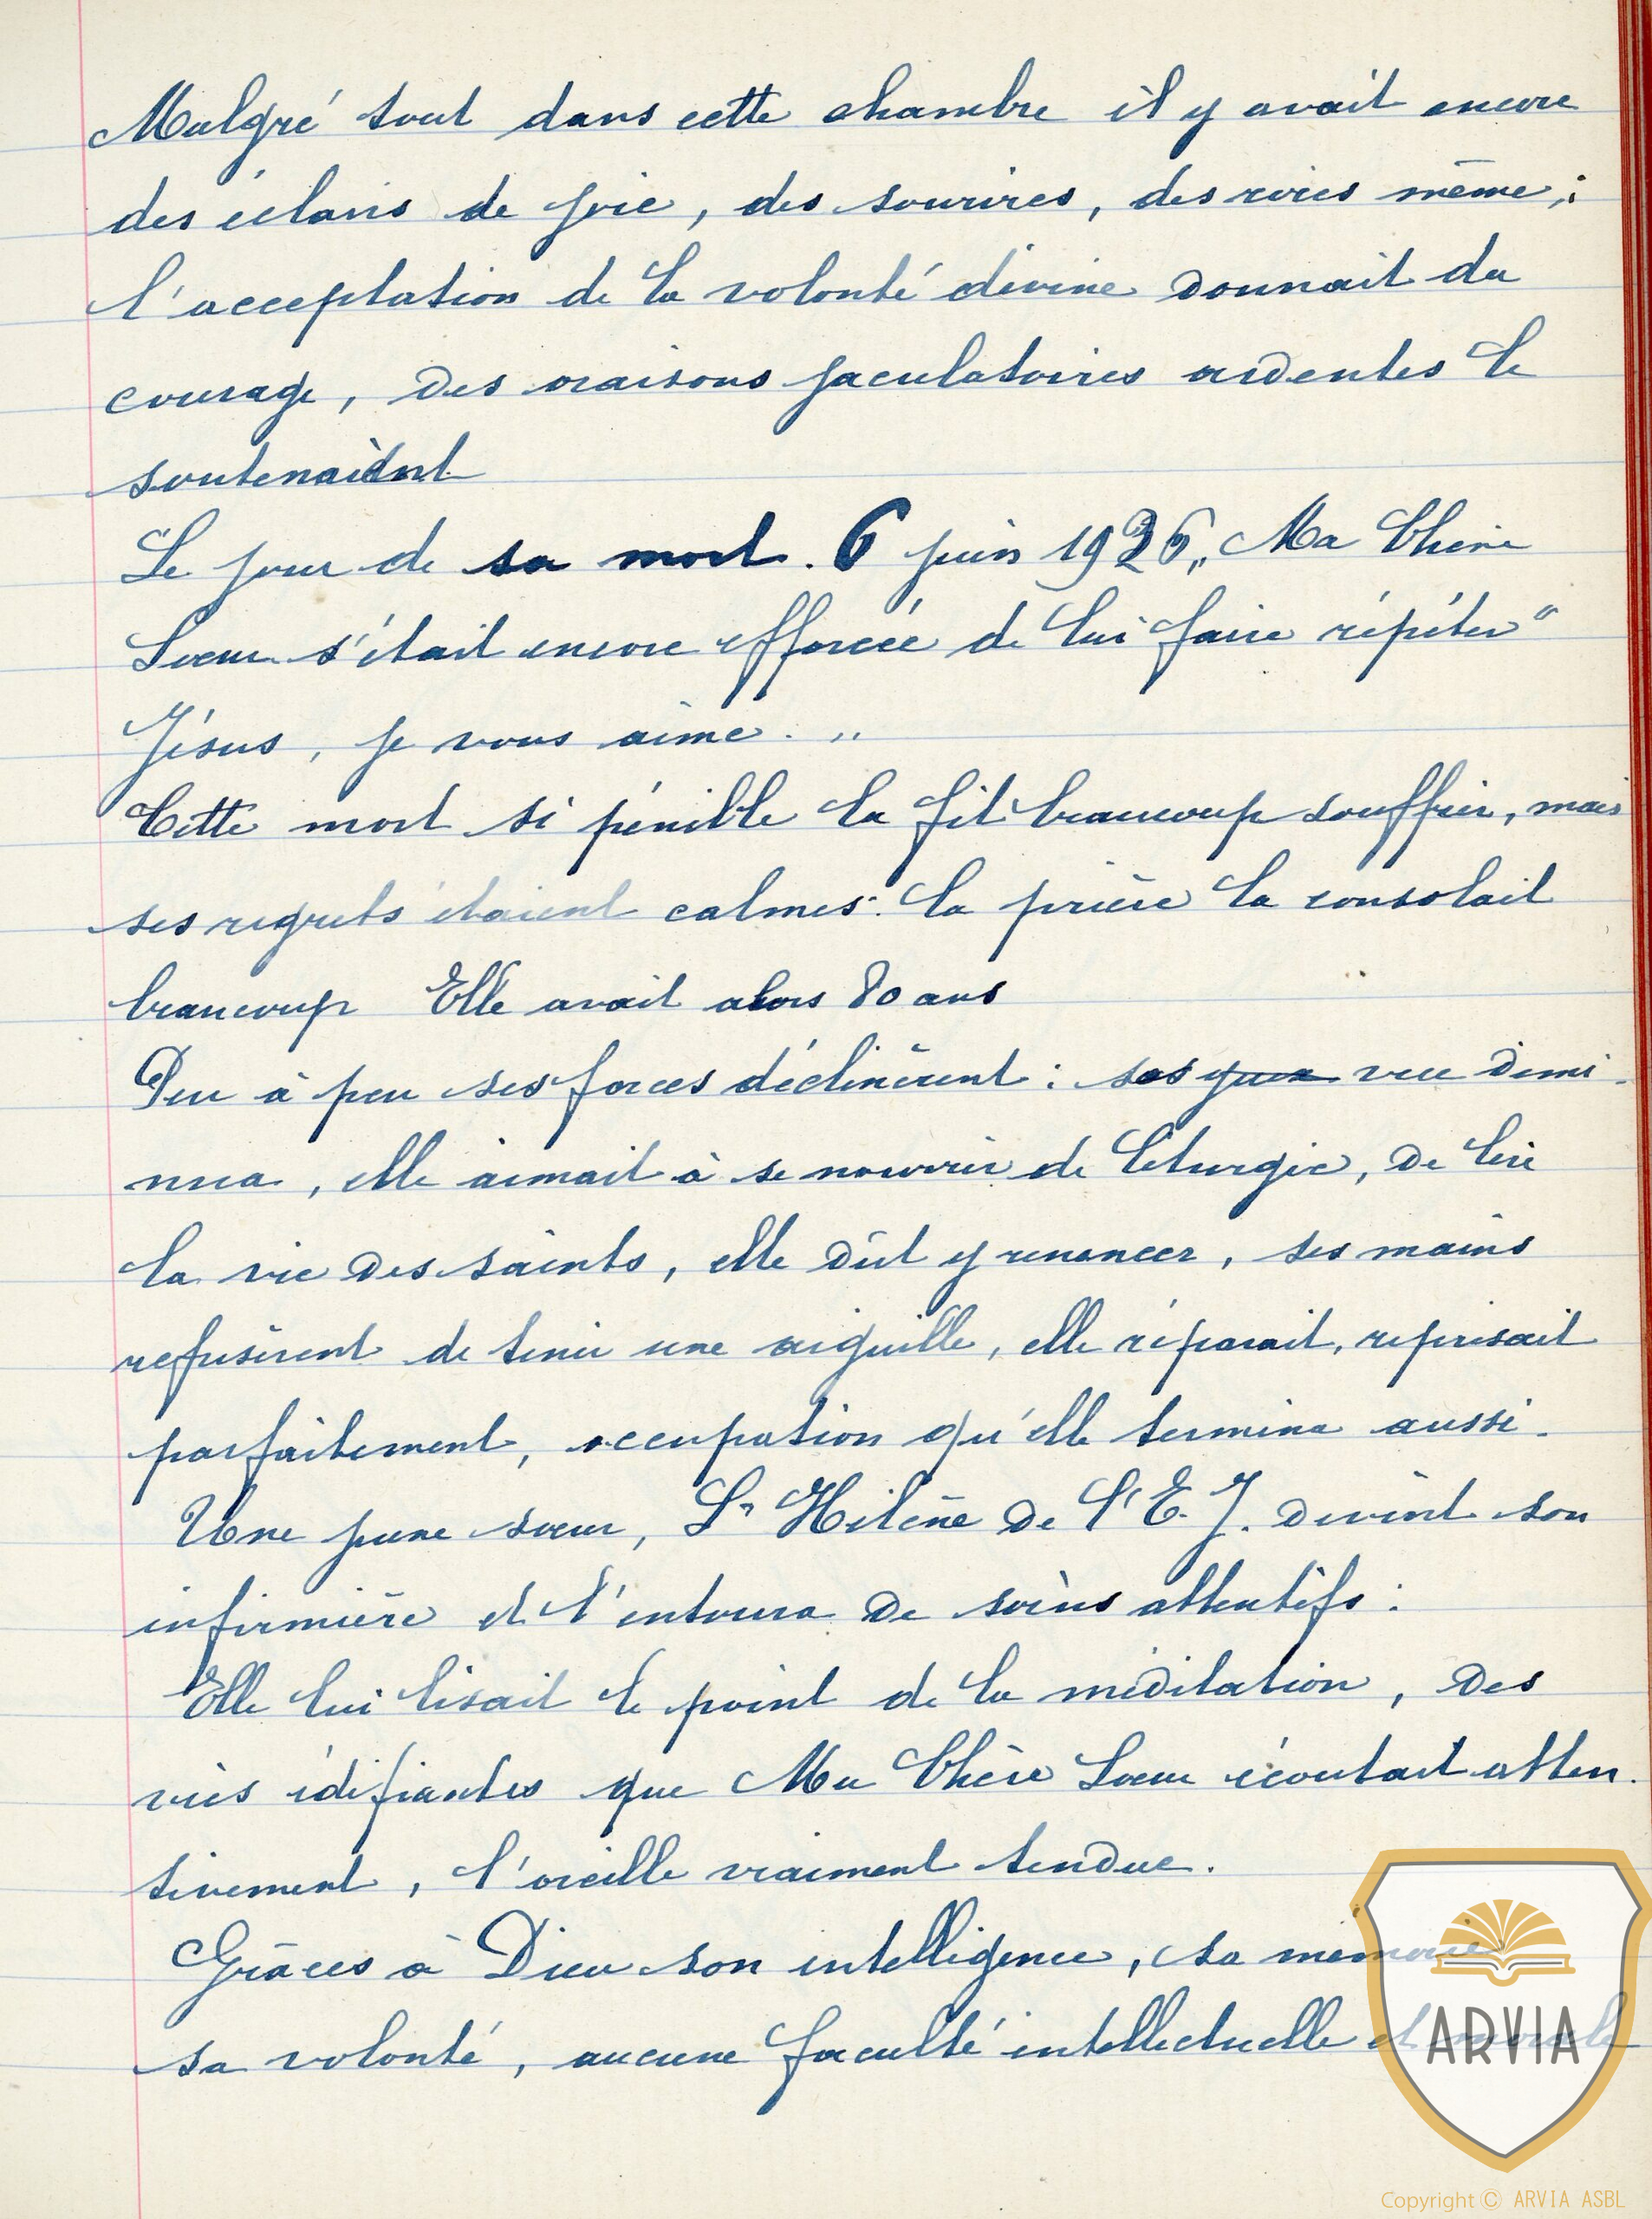 Malgré tout dans cette chambre il y avait encore
des éclairs de joie, des sourires, des rires même;
l'acceptation de la volonté divine donnait du
courage, des oraisons jaculatoires ardentes le
soutenaient
Le jour de sa mort. 6 juin 1926,, Ma Chère
Soeur s'était encore efforcée de lui faire répéter "
Jésus, je vous aime. "
Cette mort si pénible la fit beaucoup souffrir, mais
ses regrets étaient calmes: la prière la consolait
beaucoup Elle avait alors 80 ans
Peu à peu ses forces déclinèrent: sa vue dimi-
nua, elle aimait à se nourrir de liturgie, de lire
la vie des saints, elle dût y renoncer, ses mains
refusèrent de tenir une aiguille, elle réparait, reprisait
parfaitement, occupation qu'elle termina aussi.
Une jeune soeur, Sr Hélène de l'E. J. devint son
infirmière et l'entoura de soins attentifs:
Elle lui lisait le point de la méditation, des
vies édifiantes que Ma Chère Soeur écoutait atten-
tivement, l'oreille vraiment tendue.
Grâces à Dieu son intelligence, sa mémoire
sa volonté, aucune faculté intellectuelle et morale
ARVIA
Copyright © ARVIA ASBL